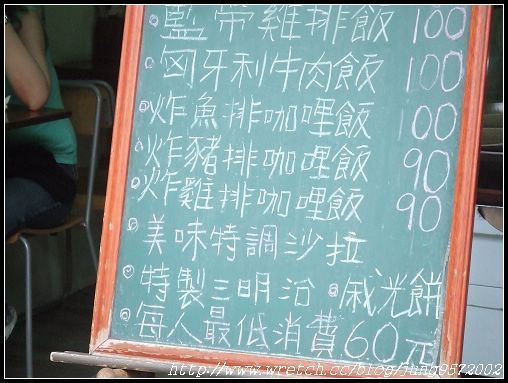 藍帶雞排飯 100
匈牙利牛肉飯 100
炸魚排咖哩飯 100
炸豬排咖哩飯 90
炸雞排咖哩飯 90
美味特調沙拉
特製三明治 戚光餅
每人最低消費60元
http://www.wretch.cc/blog/jung9572002